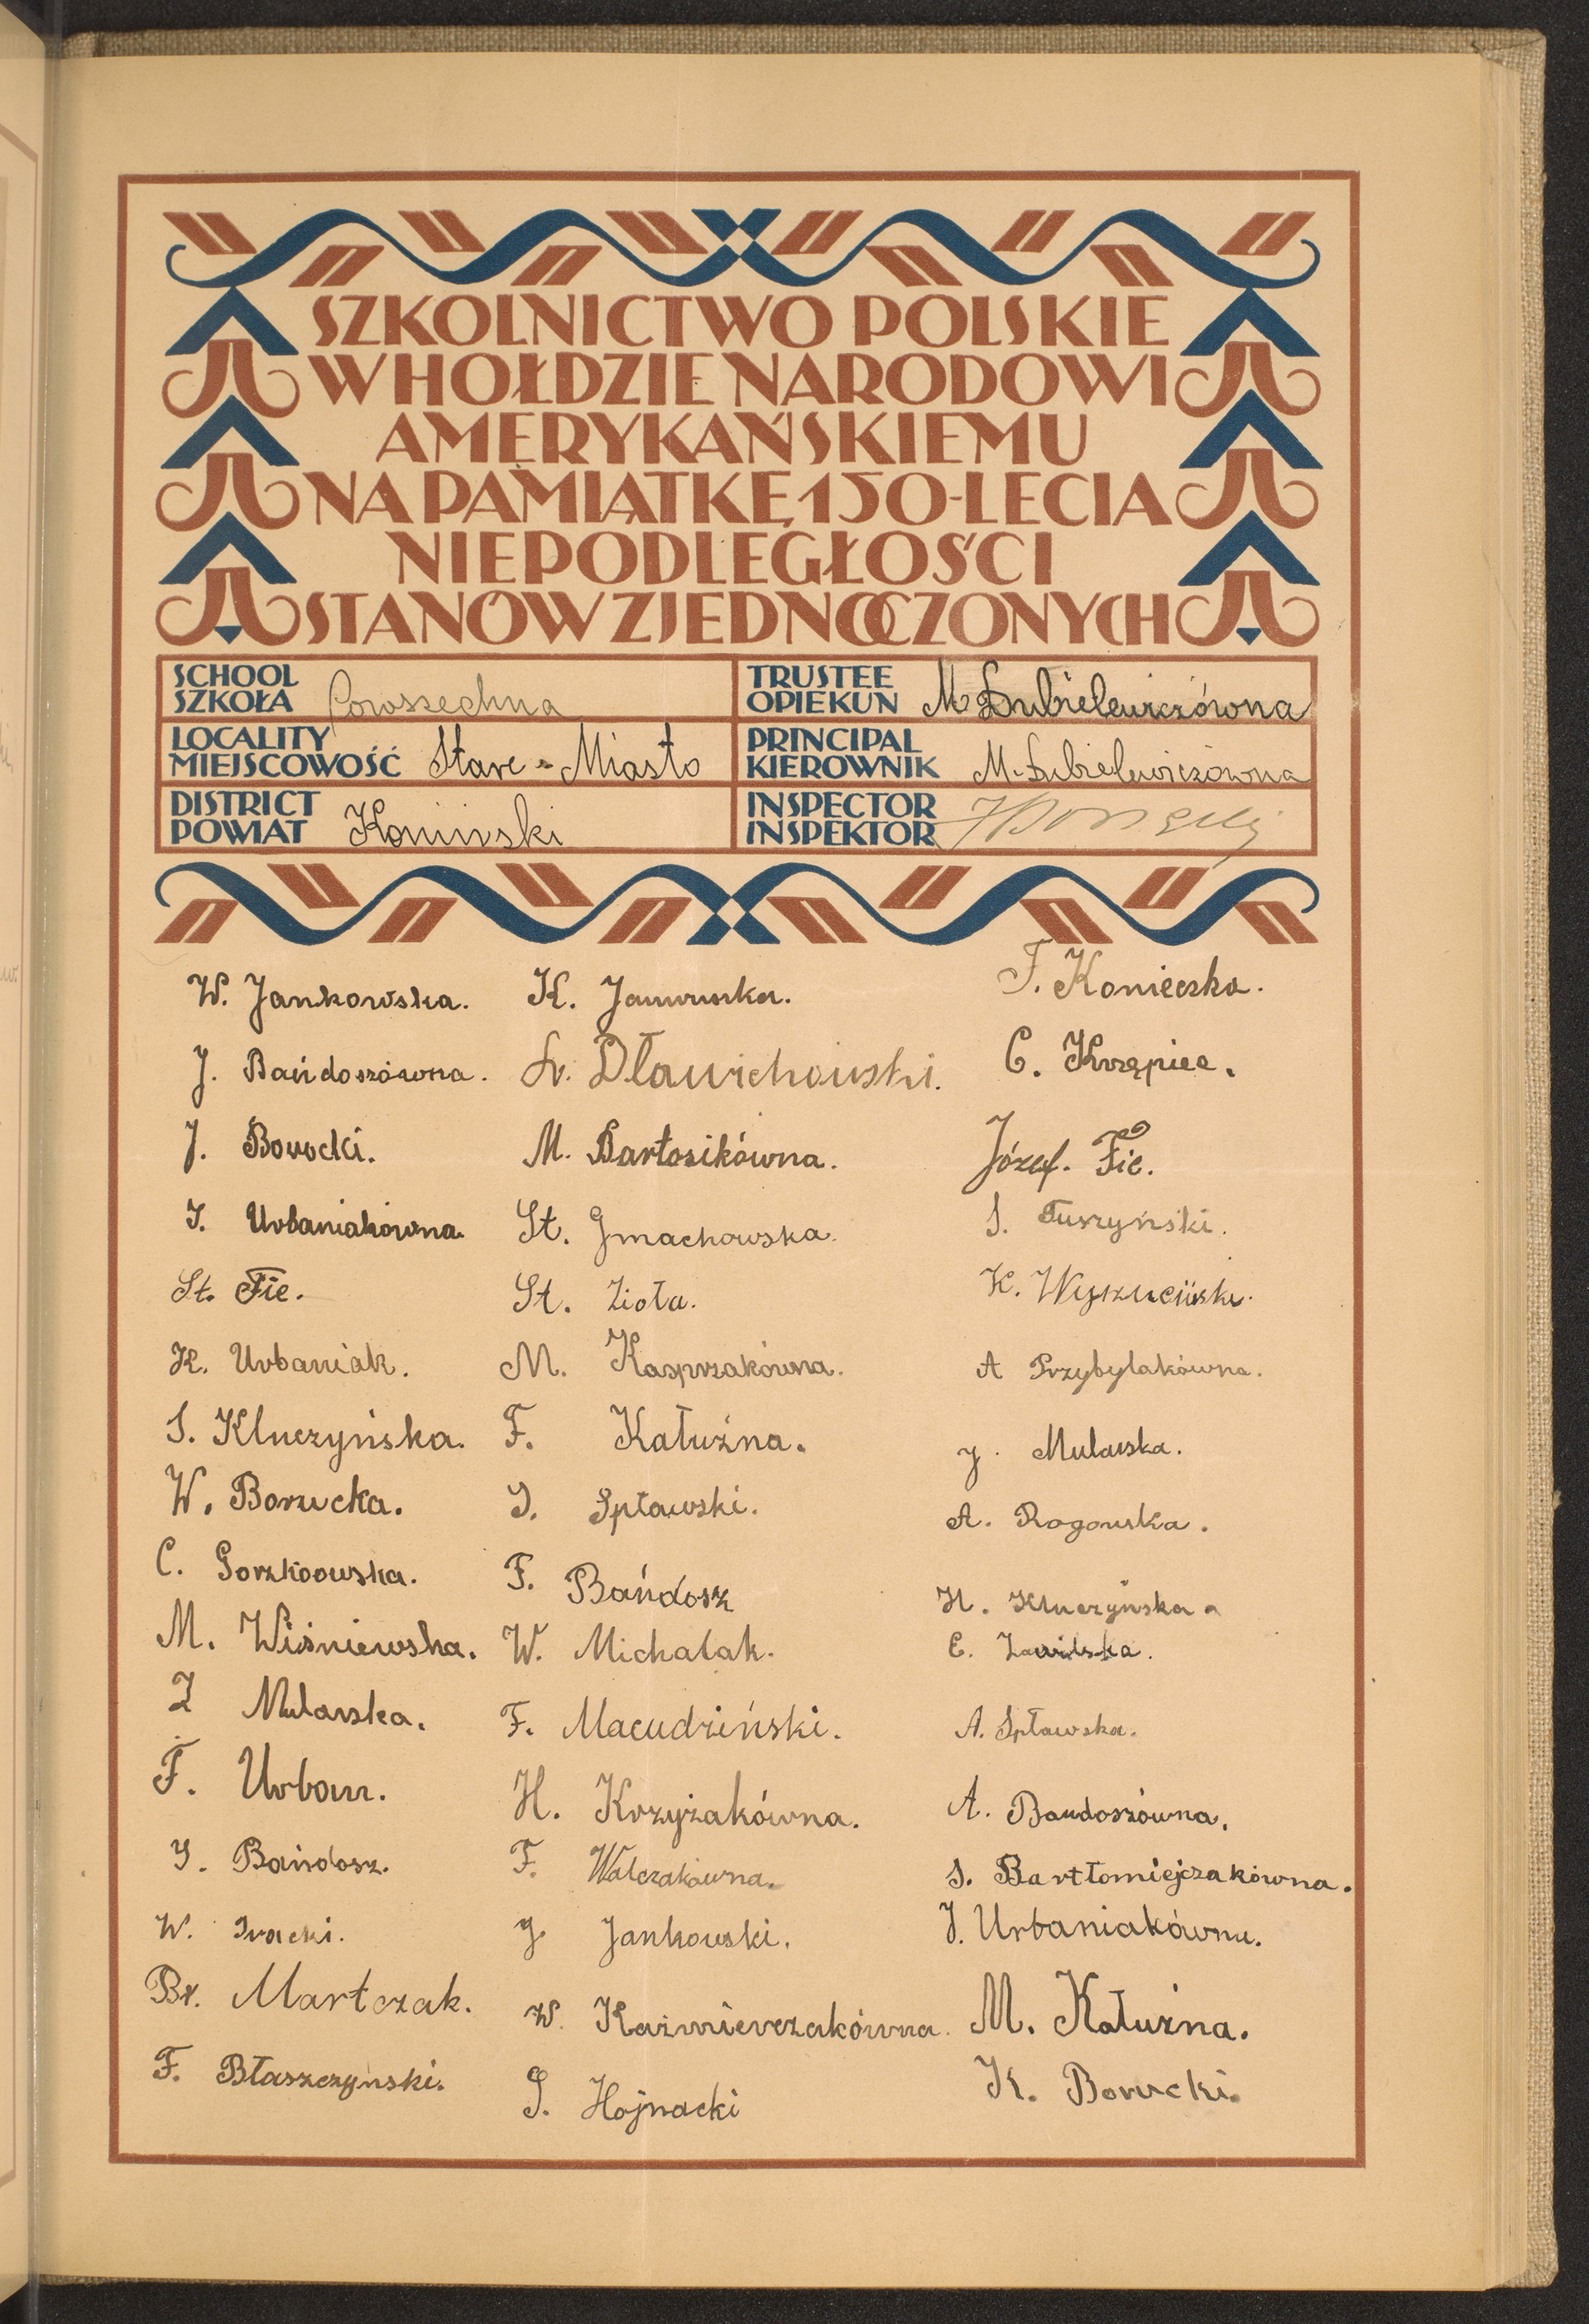 SZKOLNICTWO POLSKIE
W HOŁDZIE NARODOWI
AMERYKAŃSKIEMU
NA PAMIĄTKĘ 150-LECIA
NIEPODLEGŁOŚCI
STANÓW ZJEDNOCZONYCH
SCHOOL
SZKOŁA Powszechna
TRUSTEE
OPIEKUN M. Łubielewiczówna
LOCALITY
MIEJSCOWOŚĆ Stare-Miasto
PRINCIPAL
KIEROWNIK M. Łubielewiczówna
DISTRICT
POWIAT Koniński
INSPECTOR
INSPEKTOR
W. Jankowska.
J. Bańdoszówna.
J. Borucki.
I. Urbaniakówna
St. Fic.
K. Urbaniak.
S. Kluczyńska.
W. Borucka.
C. Gorzkoowska.
M. Wiśniewska.
Z Mularska.
F. Urban.
J. Bańdosz.
W. Iracki.
Br. Martczak.
F. Błaszczynski.
K. Januszka.
Dławichowski.
M. Bartosikówna.
St. Gmachowska.
St. Zioła.
M. Kasprzakówna.
F. Kałużna.
I. Spławski.
F. Bańdosz
W. Michalak.
F. Macudziński.
H. Krzyżakówna.
F. Walczakówna.
J Jankowski.
W. Kaźmierczakówna.
S. Hojnacki
F. Konieczka.
C. Krzępiec.
Józef. Fic.
S. Tuszyński.
K.
A Przybylakówna.
J. Mularska.
A. Rogowska.
H. Kluczyńska.
E. Zawilska.
A. Spławska.
A. Bandoszówna.
S. Bartłomiejczakówna.
J. Urbaniakówna.
M. Kałużna.
K. Borucki.